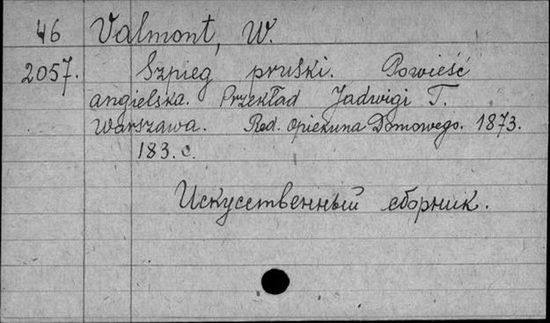 46 Valmont, W.
2057. Szpieg pruski. Powieść
angielska. Przekład Jadwigi T.
Warszawa. Red. Opiekuna Domowego. 1873.
183. c.
Искусственный сборник.